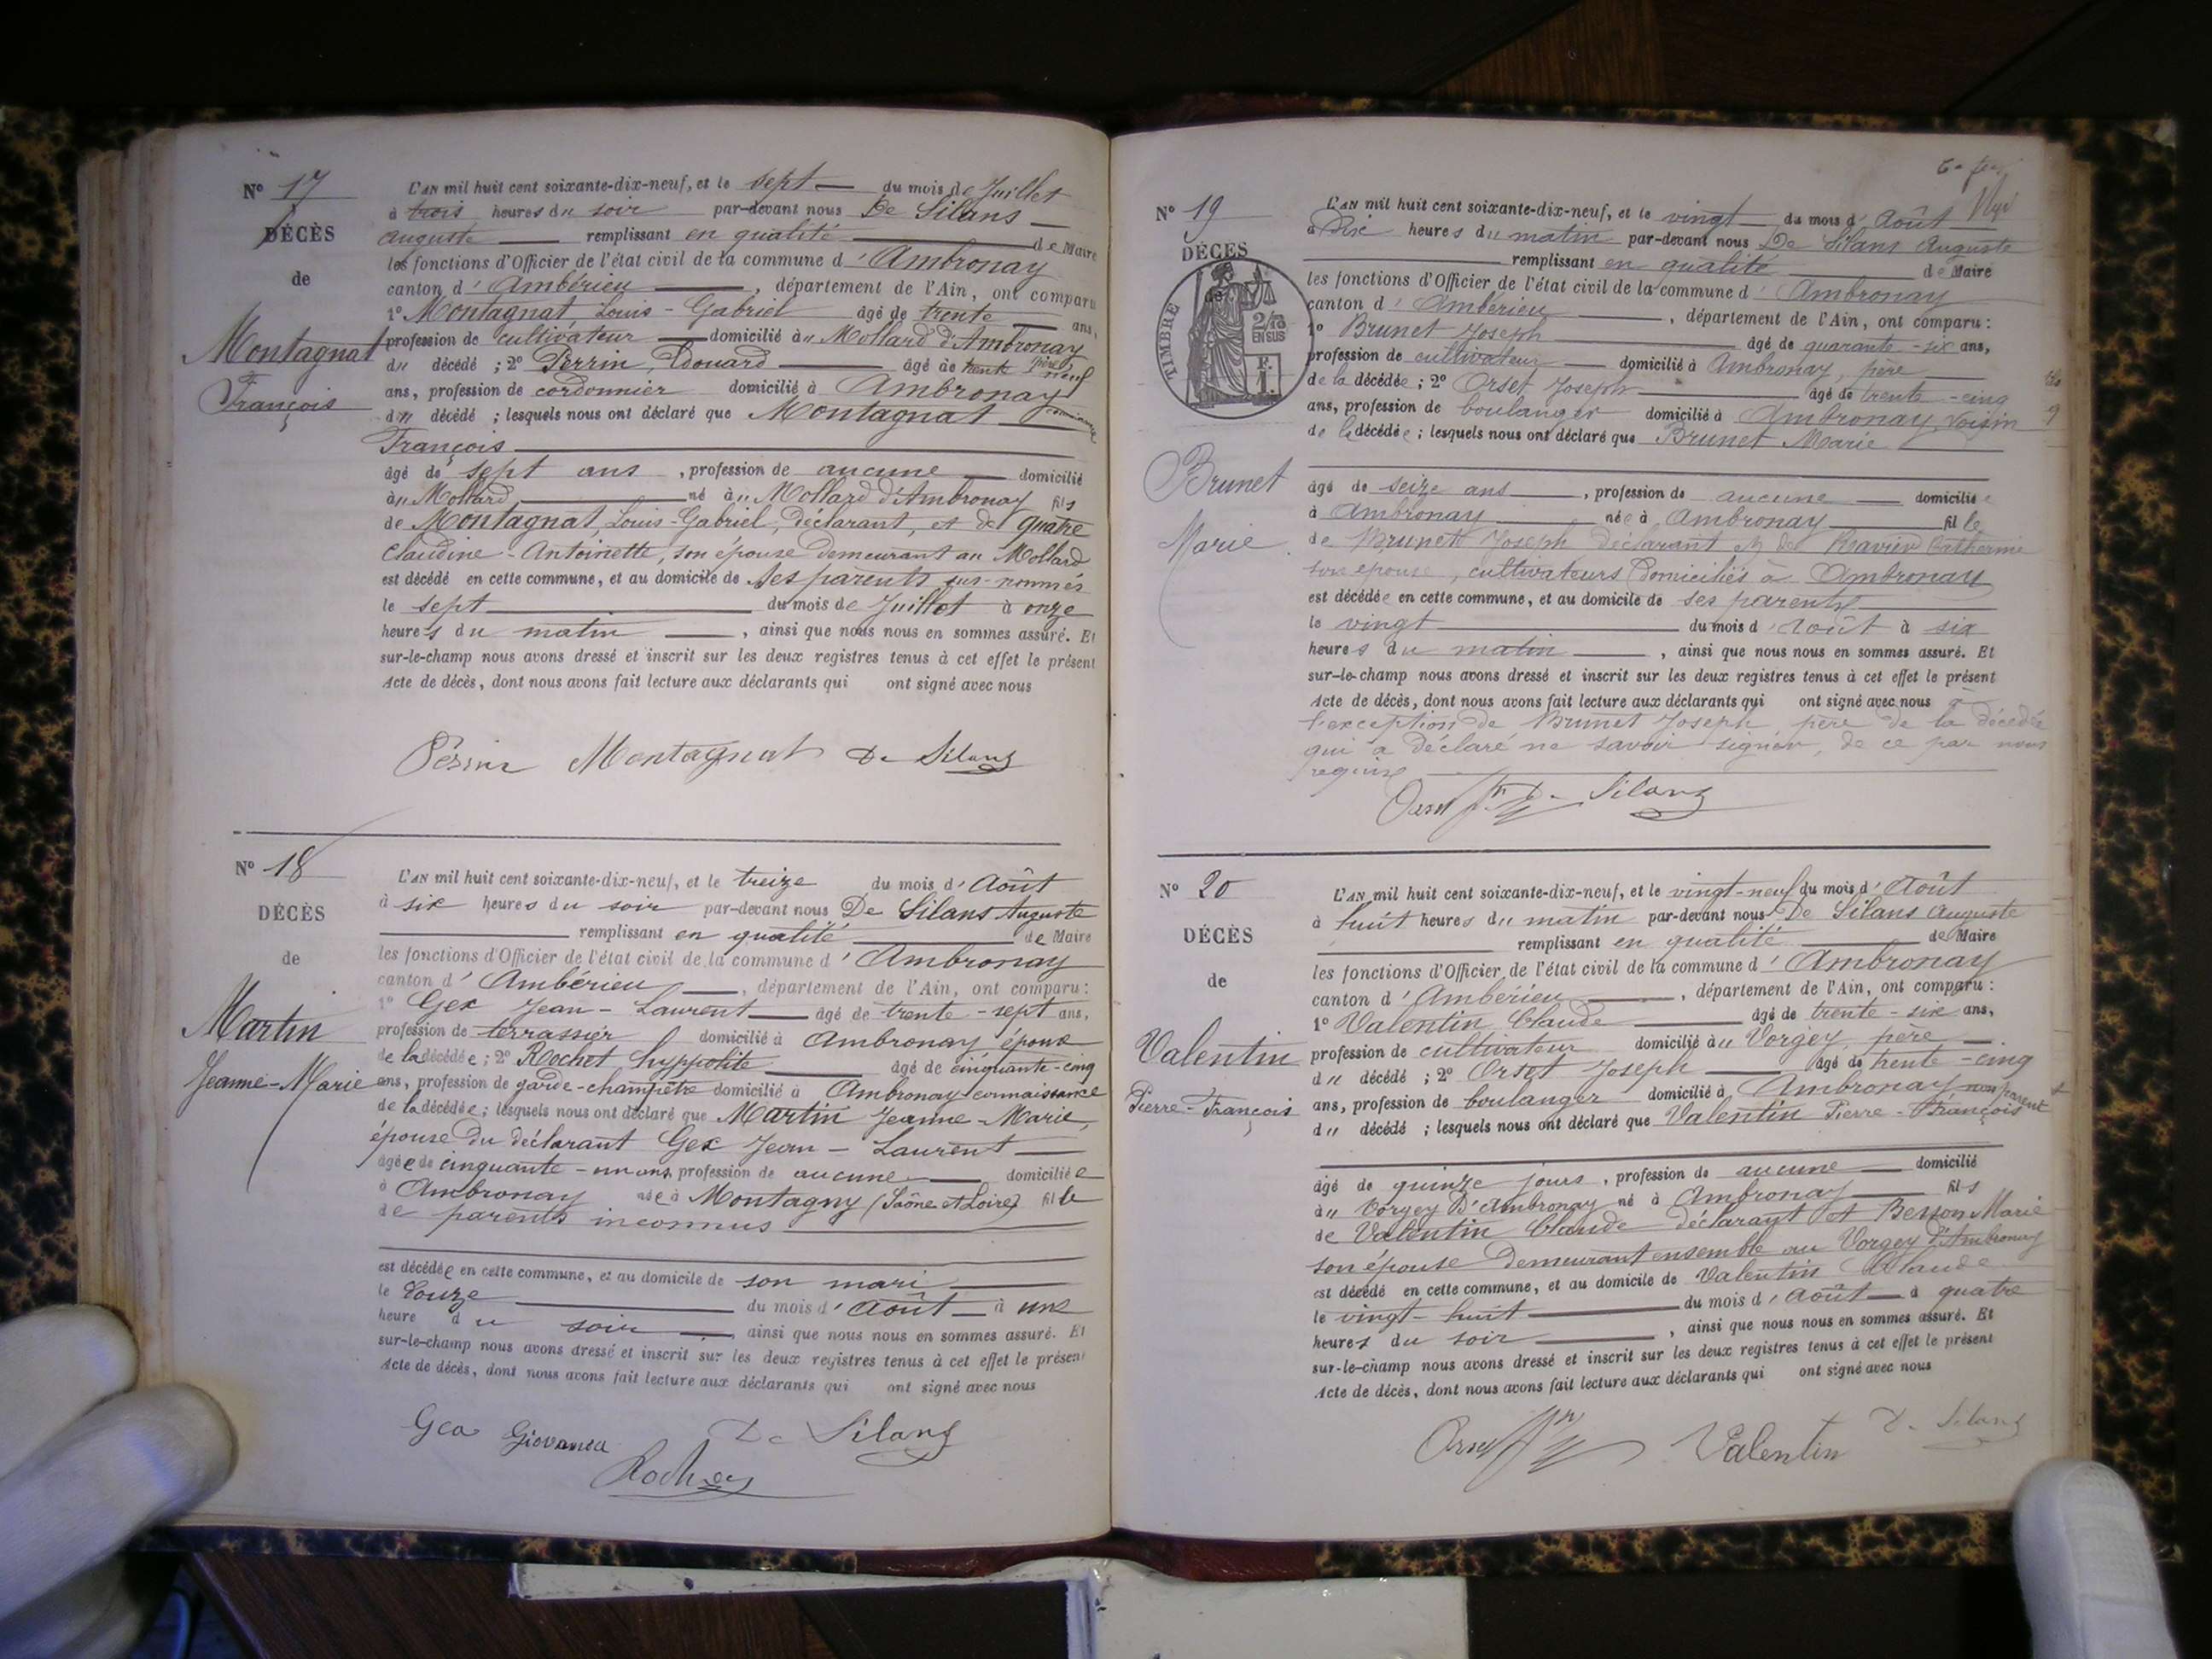 N° 17
DÉCÈS
de
Montagnat
François
L'AN mil huit cent soixante-dix-neuf, et le sept du mois de Juillet
à trois heures du soir par-devant nous De Silans
Auguste remplissant en qualité de Maire
les fonctions d'Officier de l'état civil de la commune d'Ambronay
canton d'Ambérieu, département de l'Ain, ont comparu
1° Montagnat, Louis-Gabriel âgé de trente ans,
profession de cultivateur domicilié au Mollard d'Ambronay père
du décédé ; 2° Perrin, Edouard âgé de trente neuf
ans, profession de cordonnier domicilié à Ambronay
du décédé ; lesquels nous ont déclaré que Montagnat
François
âgé de sept ans, profession de aucune domicilié
au Mollard, né au Mollard d'Ambronay fils
de Montagnat, Louis-Gabriel, déclarant, et de Quatre
Claudine-Antoinette, son épouse demeurant au Mollard
est décédé en cette commune, et au domicile de ses parents sus-nommés
le sept du mois de Juillet à onze
heures du matin, ainsi que nous nous en sommes assuré. Et
sur-le-champ nous avons dressé et inscrit sur les deux registres tenus à cet effet le présent
Acte de décès, dont nous avons fait lecture aux déclarants qui ont signé avec nous
Perrin Montagnat De Silans
N° 18
DÉCÈS
de
Martin
Jeanne-Marie
L'AN mil huit cent soixante-dix-neuf, et le treize du mois d'Août
à six heures du soir par-devant nous De Silans Auguste
remplissant en qualité de Maire
les fonctions d'Officier de l'état civil de la commune d'Ambronay
canton d'Ambérieu, département de l'Ain, ont comparu :
1° Gex Jean-Laurent âgé de trente-sept ans,
profession de terrassier domicilié à Ambronay époux
de la décédée ; 2° Rochet hyppolite âgé de cinquante-cinq
ans, profession de garde-champêtre domicilié à Ambronay connaissance
de la décédée ; lesquels nous ont déclaré que Martin Jeanne-Marie,
épouse du déclarant Gex Jean-Laurent
âgée de cinquante-un ans, profession de aucune domiciliée
à Ambronay née à Montagny (Saône et Loire) fille
de parents inconnus
est décédée en cette commune, et au domicile de son mari
le douze du mois d'Août à une
heure du soir, ainsi que nous nous en sommes assuré. Et
sur-le-champ nous avons dressé et inscrit sur les deux registres tenus à cet effet le présent
Acte de décès, dont nous avons fait lecture aux déclarants qui ont signé avec nous
Gea Giovanea De Silans
Rochet
N° 19
DÉCÈS
de
TIMBRE
2/10
EN SUS
F.
1.
Brunet
Marie
L'AN mil huit cent soixante-dix-neuf, et le vingt du mois d'Août
à dix heures du matin par-devant nous De Silans Auguste
remplissant en qualité de Maire
les fonctions d'Officier de l'état civil de la commune d'Ambronay
canton d'Ambérieu, département de l'Ain, ont comparu :
1° Brunet Joseph âgé de quarante-six ans,
profession de cultivateur domicilié à Ambronay, père
de la décédée ; 2° Orset Joseph âgé de trente-cinq
ans, profession de boulanger domicilié à Ambronay, voisin
de la décédée ; lesquels nous ont déclaré que Brunet Marie
âgé de seize ans, profession de aucune domiciliée
à Ambronay née à Ambronay fille
de Brunet Joseph déclarant et de Ravier Catherine
son épouse, cultivateurs domiciliés à Ambronay
est décédée en cette commune, et au domicile de ses parents
le vingt du mois d'Août à six
heures du matin, ainsi que nous nous en sommes assuré. Et
sur-le-champ nous avons dressé et inscrit sur les deux registres tenus à cet effet le présent
Acte de décès, dont nous avons fait lecture aux déclarants qui ont signé avec nous à
l'exception de Brunet Joseph père de la décédée
qui a déclaré ne savoir signer, de ce par nous
requise
Orset De Silans
N° 20
DÉCÈS
de
Valentin
Pierre-François
L'AN mil huit cent soixante-dix-neuf, et le vingt-neuf du mois d'Août
à huit heures du matin par-devant nous De Silans Auguste
remplissant en qualité de Maire
les fonctions d'Officier de l'état civil de la commune d'Ambronay
canton d'Ambérieu, département de l'Ain, ont comparu :
1° Valentin Claude âgé de trente-six ans,
profession de cultivateur domicilié au Vorgey, père
du décédé ; 2° Orset Joseph âgé de trente-cinq
ans, profession de boulanger domicilié à Ambronay non parent
du décédé ; lesquels nous ont déclaré que Valentin Pierre-François
âgé de quinze jours, profession de aucune domicilié
au Vorgey D'Ambronay né à Ambronay fils
de Valentin Claude déclarant et Besson Marie
son épouse demeurant ensemble au Vorgey d'Ambronay
est décédé en cette commune, et au domicile de Valentin Claude
le vingt-huit du mois d'Août à quatre
heures du soir, ainsi que nous nous en sommes assuré. Et
sur-le-champ nous avons dressé et inscrit sur les deux registres tenus à cet effet le présent
Acte de décès, dont nous avons fait lecture aux déclarants qui ont signé avec nous
Orset Valentin De Silans